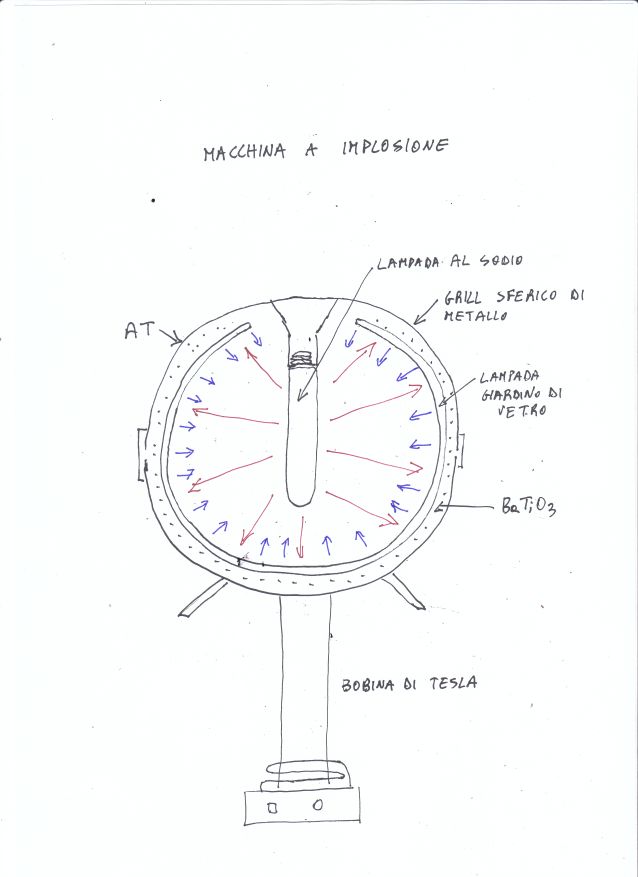 MACCHINA A IMPLOSIONE
LAMPADA AL SODIO
GRILL SFERICO DI
METALLO
AT
LAMPADA
GIARDINO DI
VETRO
BaTiO3
BOBINA DI TESLA